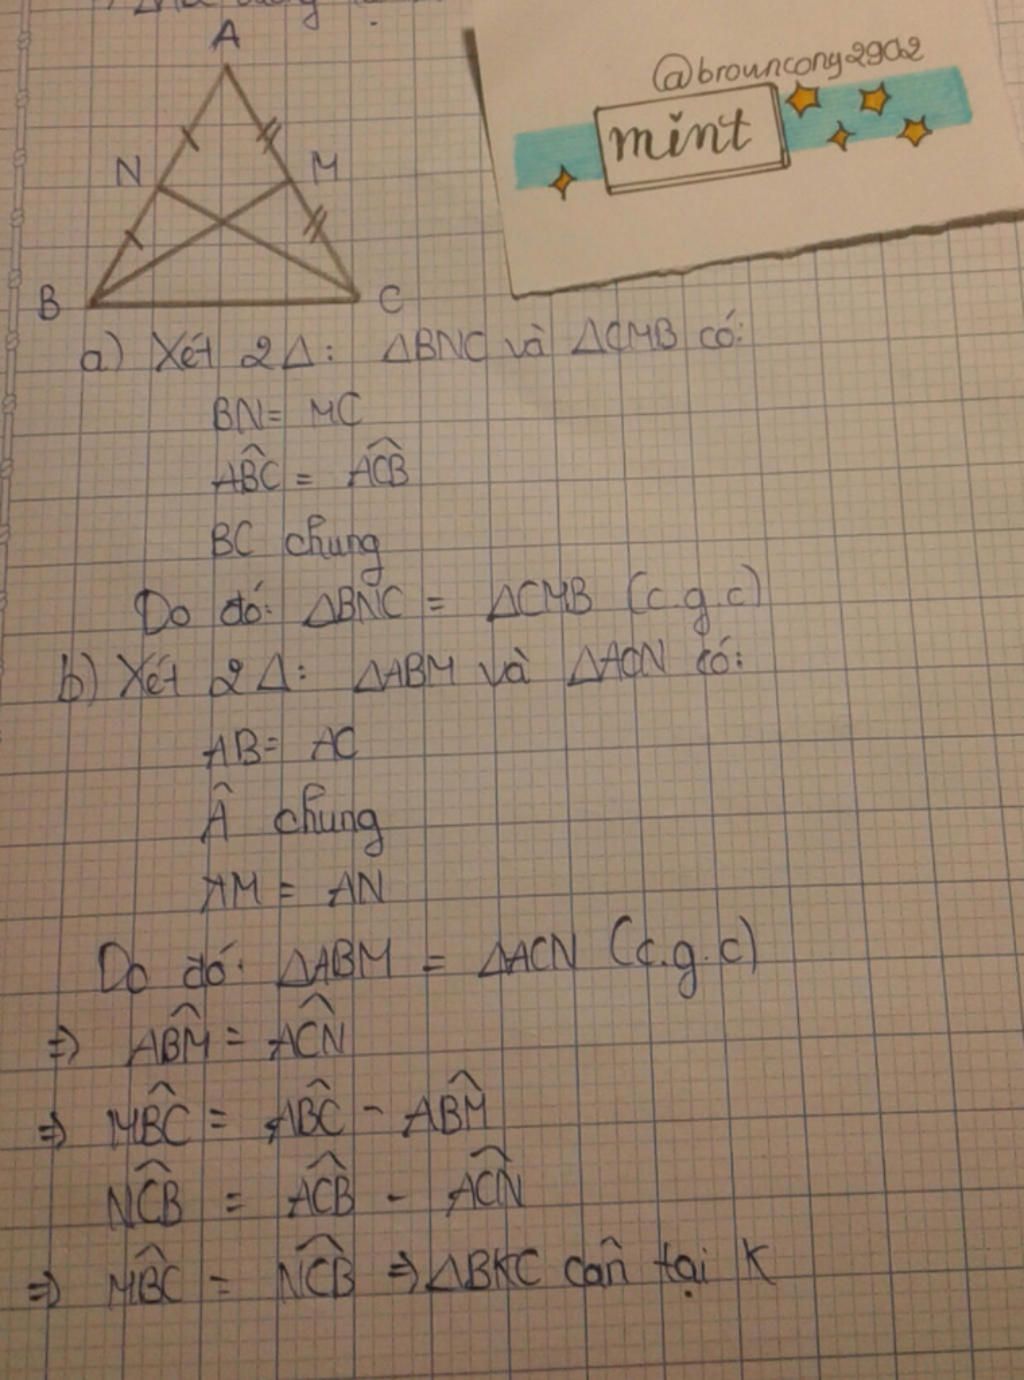 A
@browncony2902
mint
N
M
B
C
a) Xét 2Δ: ΔBNC và ΔCMB có:
BN = MC
ABC = ACB
BC chung
Do đó: ΔBNC = ΔCMB (c.g.c)
b) Xét 2Δ: ΔABM và ΔACN có:
AB = AC
Â chung
AM = AN
Do đó: ΔABM = ΔACN (c.g.c)
⇒ ABM = ACN
⇒ MBC = ABC - ABM
NCB = ACB - ACN
⇒ MBC = NCB ⇒ ΔBKC cân tại K